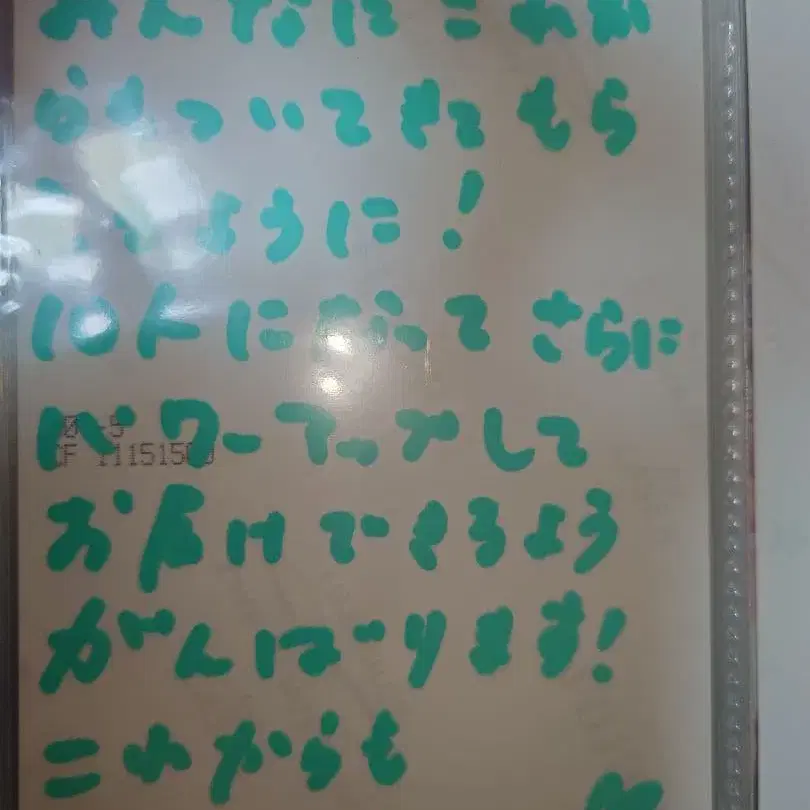 みんなに これか
らも ついてきて もら
えるように!
10人になって さらに
パワーアップして
お届けできるよう
がんばります!
これからも